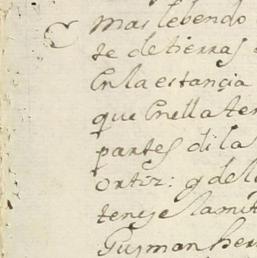 mas le bendo
te de tierras
En la estançia
que En ella ten
partes di la
ortiz: q de l
tengo la mit
Guzman her